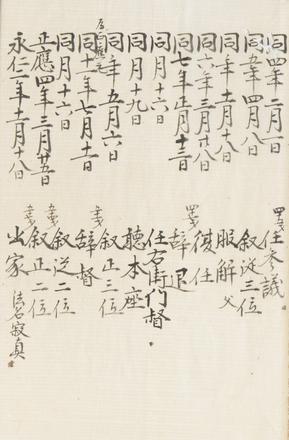 同四年二月一日 任参議
同五年四月八日 叙従三位
同年十一月十八日 服解父
同六年三月廿八日 復任
同七年正月十三日 辞退
同月十六日 任右衛門督
同月十九日 聴本座
同年五月六日 叙正三位
同十一年七月十一日 辞督
同月十六日 叙従二位
正應四年三月廿五日 叙正二位
永仁二年十二月十八日 出家 法名寂真